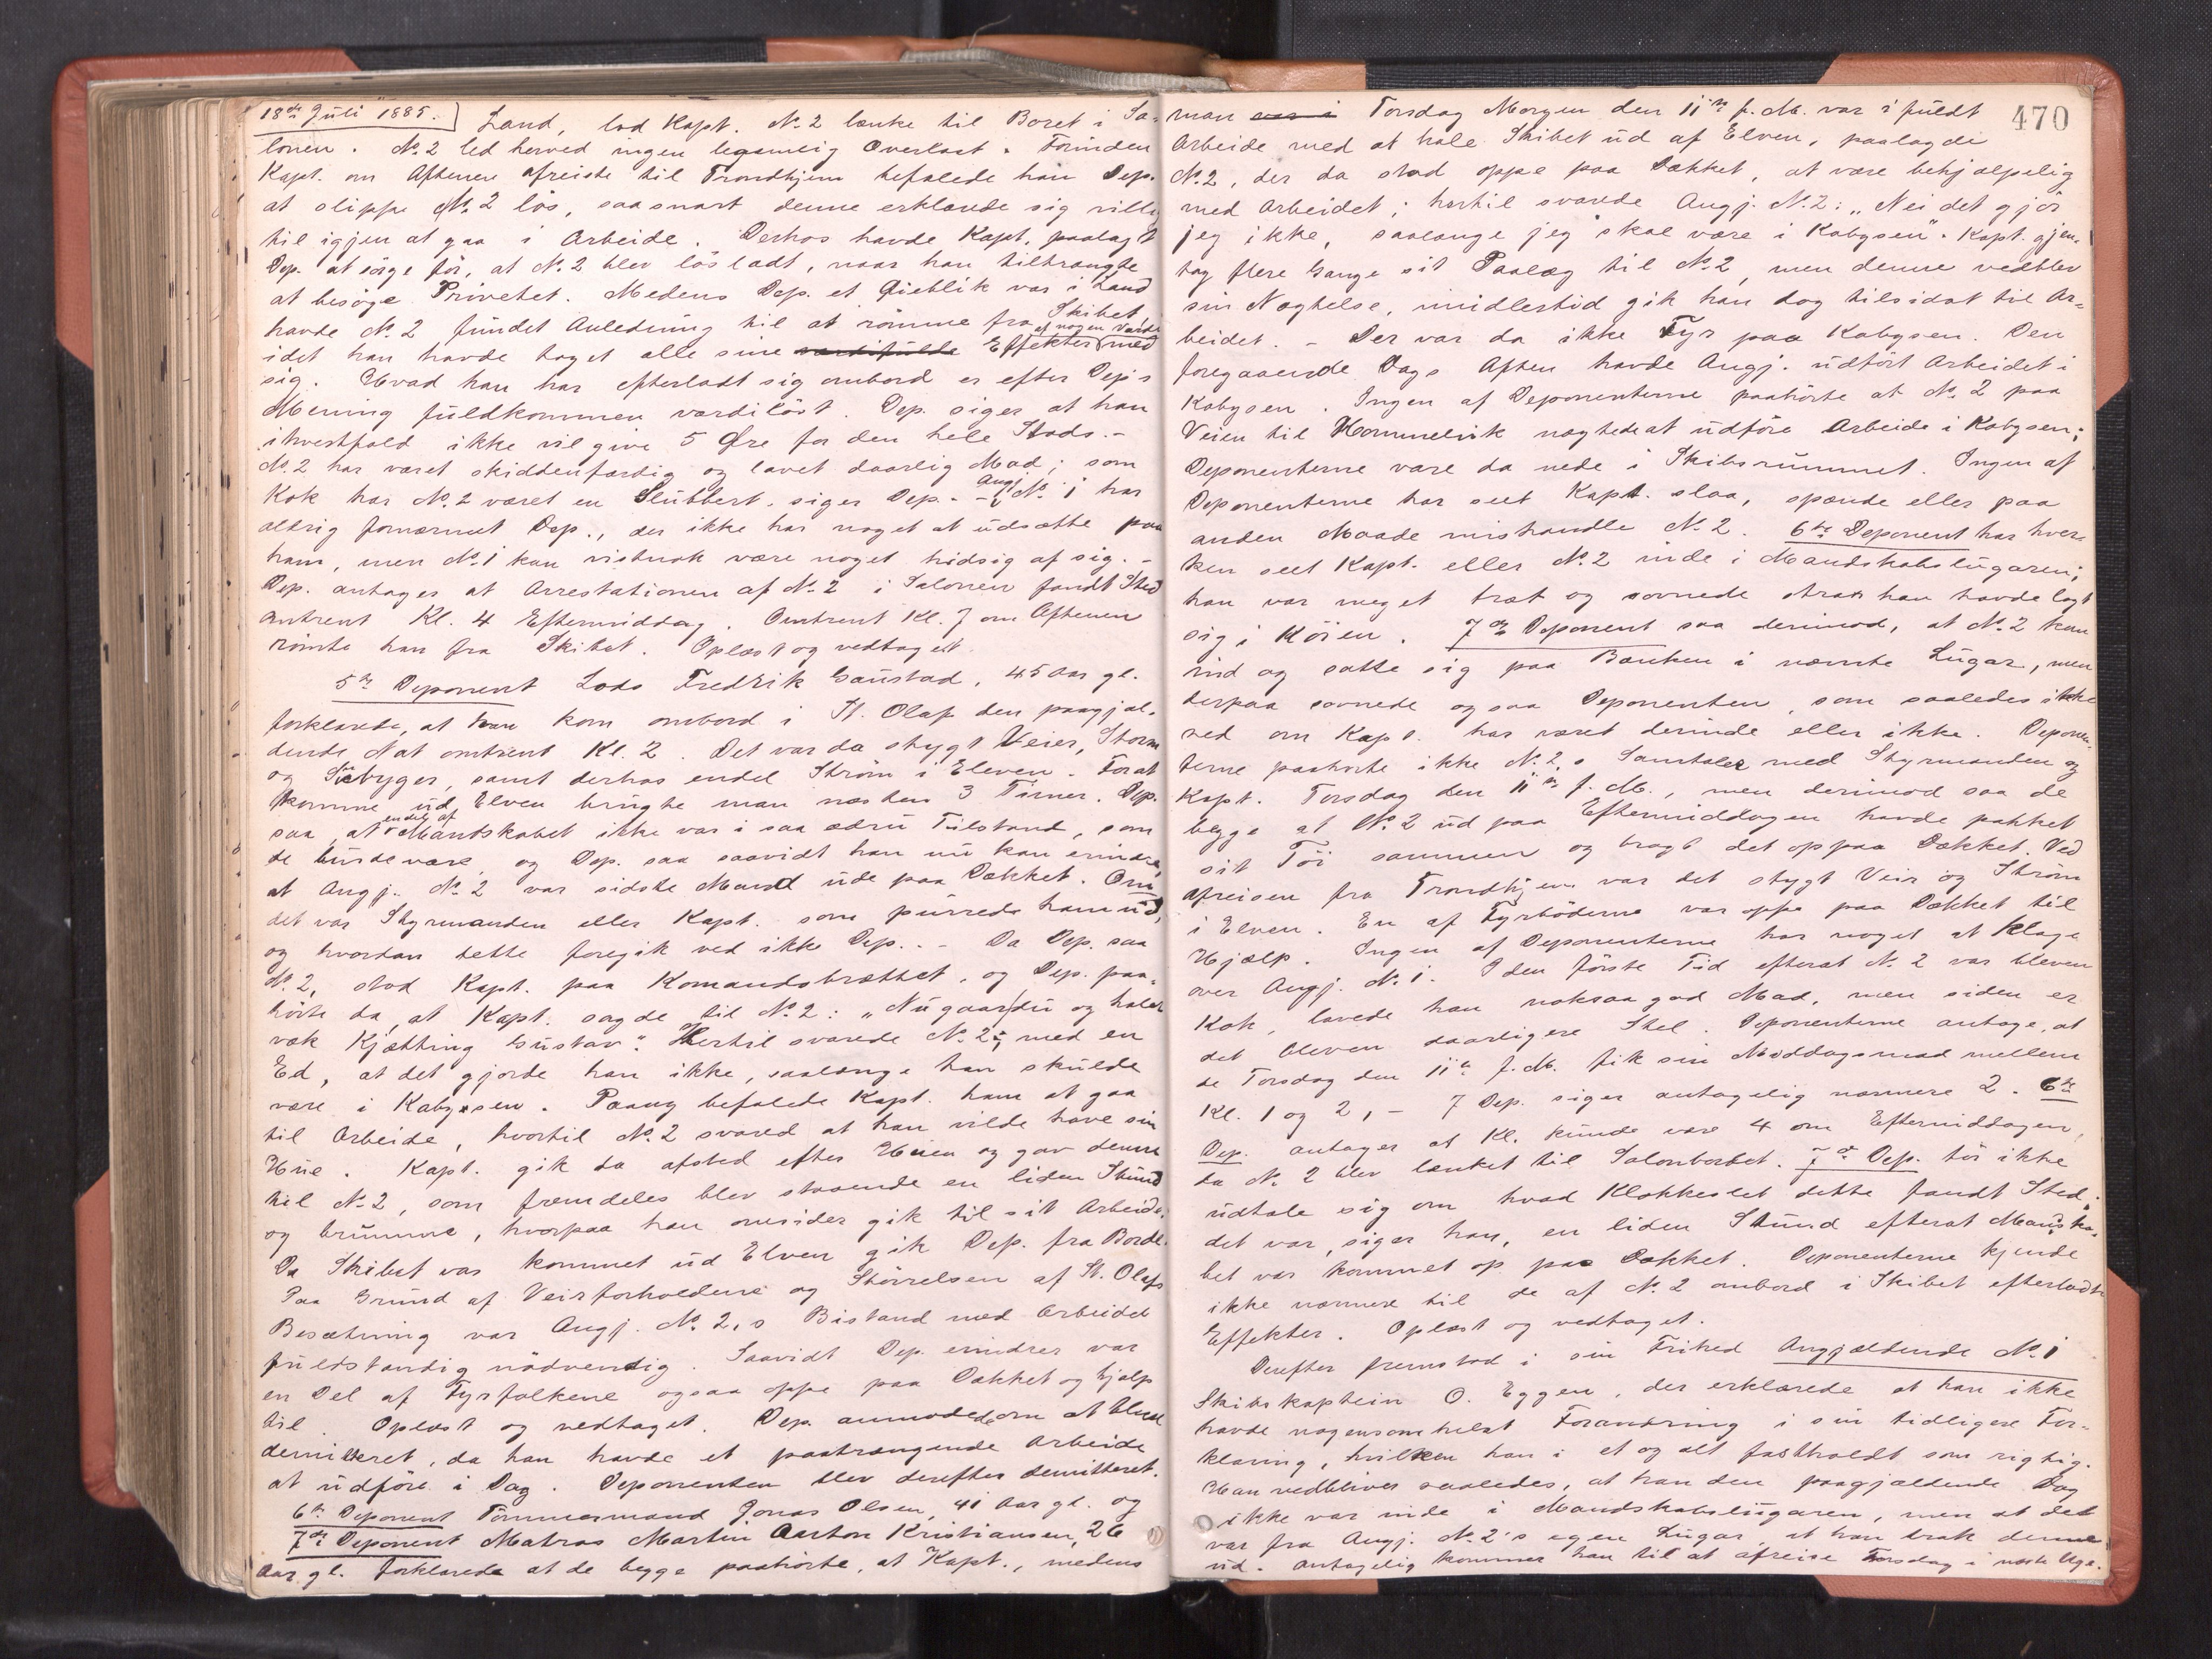 18de Juli 1885.
Land, lod Kapt. No. 2 lænke til Boret i Sa-
lonen. No. 2 led herved ingen legemlig Overlast. Forinden
Kapt. om Aftenen afreiste til Trondhjem befalede han Dep.
at slippe No. 2 lös, saasnart denne erklærede sig villig
til igjen at gaa i Arbeide. Derhos havde Kapt. paalagt
Dep. at sörge för, at No. 2 blev lösladt, naar han tiltrængte
at besöge Privetet. Medens Dep. et Øieblik var i Land
havde No. 2 fundet Anledning til at römme fra Skibet
idet han havde taget alle sine værdifulde Effekter af nogen Værdi med
sig. Hvad han har efterladt sig ombord er efter Dep's
Mening fuldkommen værdilöst. Dep. siger at han
ihvertfald ikke vil give 5 Øre for den hele Stads.-
No. 2 har været skiddenfærdig og lavet daarlig Mad; som
Kok har No. 2 været en Slubbert, siger Dep. - Angj. No. 1 har
aldrig fornærmet Dep., der ikke har noget at udsætte paa
ham, men No. 1 kan vistnok være noget hidsig af sig. -
Dep. antager at Arrestationen af No. 2 i Salonen fandt Sted
omtrent Kl. 4 Eftermiddag. Omtrent Kl. 7 om Aftenen
römte han fra Skibet. Oplæst og vedtaget.
5te Deponent Lods Fredrik Gaustad, 45 Aar gl.
forklarede, at han kom ombord i St. Olaf den paagjæl-
dende Nat omtrent Kl. 2. Det var da stygt Veier, Storm
og Snebyger, samt derhos endel Ström i Elven. Forat
komme ud Elven brugte man næsten 3 Timer. Dep.
saa, at endel af Mandskabet ikke var i saa ædru Tilstand, som
de burde være, og Dep. saa saavidt han nu kan erindre,
at Angj. No. 2 var sidste Mand ude paa Dækket. Om
det var Styrmanden eller Kapt. som purrede ham ud,
og hvordan dette foregik ved ikke Dep. - Da Dep. saa
No. 2, stod Kapt. paa Komandobrættet, og Dep. paa-
hörte da, at Kapt. sagde til No. 2: "Nu gaar du og haler
væk Kjætting Gustav". Hertil svarede No. 2, med en
Ed, at det gjorde han ikke, saalænge han skulde
være i Kabyssen. Paany befalede Kapt. ham at gaa
til Arbeide, hvortil No. 2 svared at han vilde have sin
Hue. Kapt. gik da afsted efter Huen og gav denne
til No. 2, som fremdeles blev staaende en liden Stund
og brumme, hvorpaa han omsider gik til sit Arbeide.
Da Skibet var kommet ud Elven gik Dep. fra Borde.
Paa Grund af Veirforholdene og Störrelsen af St. Olafs
Besætning var Angj. No. 2,s Bistand med Arbeidet
fuldstændig nödvendig. Saavidt Dep. erindrer var
en Del af Fyrfolkene ogsaa oppe paa Dækket og hjalp
til. Oplæst og vedtaget. Dep. anmodede om at blive
demitteret, da han havde et paatrængende Arbeide
at udföre i Dag. Deponenten blev derefter demitteret.
6te Deponent Tömmermand Jonas Olsen, 41 Aar gl. og
7de Deponent Matros Martin Anton Kristiansen, 26
Aar gl. forklarede at de begge paahörte, at Kapt., medens
470
man var i Torsdag Morgen den 11te f. M. var i fuldt
Arbeide med at hale Skibet ud af Elven, paalagde
No. 2, der da stod oppe paa Dækket, at være behjælpelig
med Arbeidet; hertil svarede Angj. No. 2: "Nei det gjör
jeg ikke, saalænge jeg skal være i Kabysen". Kapt. gjen-
tog flere Gange sit Paalæg til No. 2, men denne vedblev
sin Nægtelse, imidlertid gik han dog tilsidst til Ar-
beidet. - Der var da ikke Fyr paa Kabysen. Den
foregaaende Dags Aften havde Angj. udfört Arbeidet i
Kabysen. Ingen af Deponenterne paahörte at No. 2 paa
Veien til Hommelvik nægtede at udföre Arbeide i Kabysen;
Deponenterne vare da nede i Skibsrummet. Ingen af
Deponenterne har seet Kapt. slaa, spænde eller paa
anden Maade mishandle No. 2. 6te Deponent har hver-
ken seet Kapt. eller No. 2 inde i Mandskabslugaren;
han var meget træt og sovnede strax han havde lagt
sig i Köien. 7de Deponent saa derimod, at No. 2 kom
ind og satte sig paa Bænken i nævnte Lugar, men
derpaa sovnede ogsaa Deponenten, som saaledes ikke
ved om Kapt. har været derinde eller ikke. Deponen-
terne paahörte ikke No. 2,s Samtaler med Styrmanden og
Kapt. Torsdag den 11te f. M., men derimod saa de
begge at No. 2 ud paa Eftermiddagen havde pakket
sit Töi sammen og bragt det oppaa Dækket. Ved
afreisen fra Trondhjem var det stygt Veir og Ström
i Elven. En af Fyrböderne var oppe paa Dækket til
Hjælp. Ingen af Deponenterne har noget at Klage
over Angj. No. 1. I den förste Tid efterat No. 2 var bleven
Kok, lavede han noksaa god Mad, men siden er
det bleven daarligere Stel. Deponenterne antage, at
de Torsdag den 11te f. M. fik sin Middagsmad mellem
Kl. 1 og 2, - 7 Dep. siger antagelig nærmere 2. 6te
Dep. antager at Kl. kunde være 4 om Eftermiddagen,
da No. 2 blev lænket til Salonbordet. 7de Dep. tör ikke
udtale sig om hvad Klokkeslet dette fandt Sted;
det var, siger han, en liden Stund efterat Mandska-
bet var kommet op paa Dækket. Deponenterne kjende
ikke nærmere til de af No. 2 ombord i Skibet efterladte
Effekter. Oplæst og vedtaget.
Derefter fremstod i sin Frihed Angjældende No. 1
Skibskaptein O. Eggen, der erklærede at han ikke
havde nogensomhelst Forandring i sin tidligere For-
klaring, hvilken han i et og alt fastholdt som rigtig.
Han vedbliver saaledes, at han den paagjældende Dag
ikke var inde i Mandskabslugaren, men at det
var fra Angj. No. 2's egen Lugar, at han trak denne
ud. Antagelig kommer han til at afreise Torsdag i næste Uge.